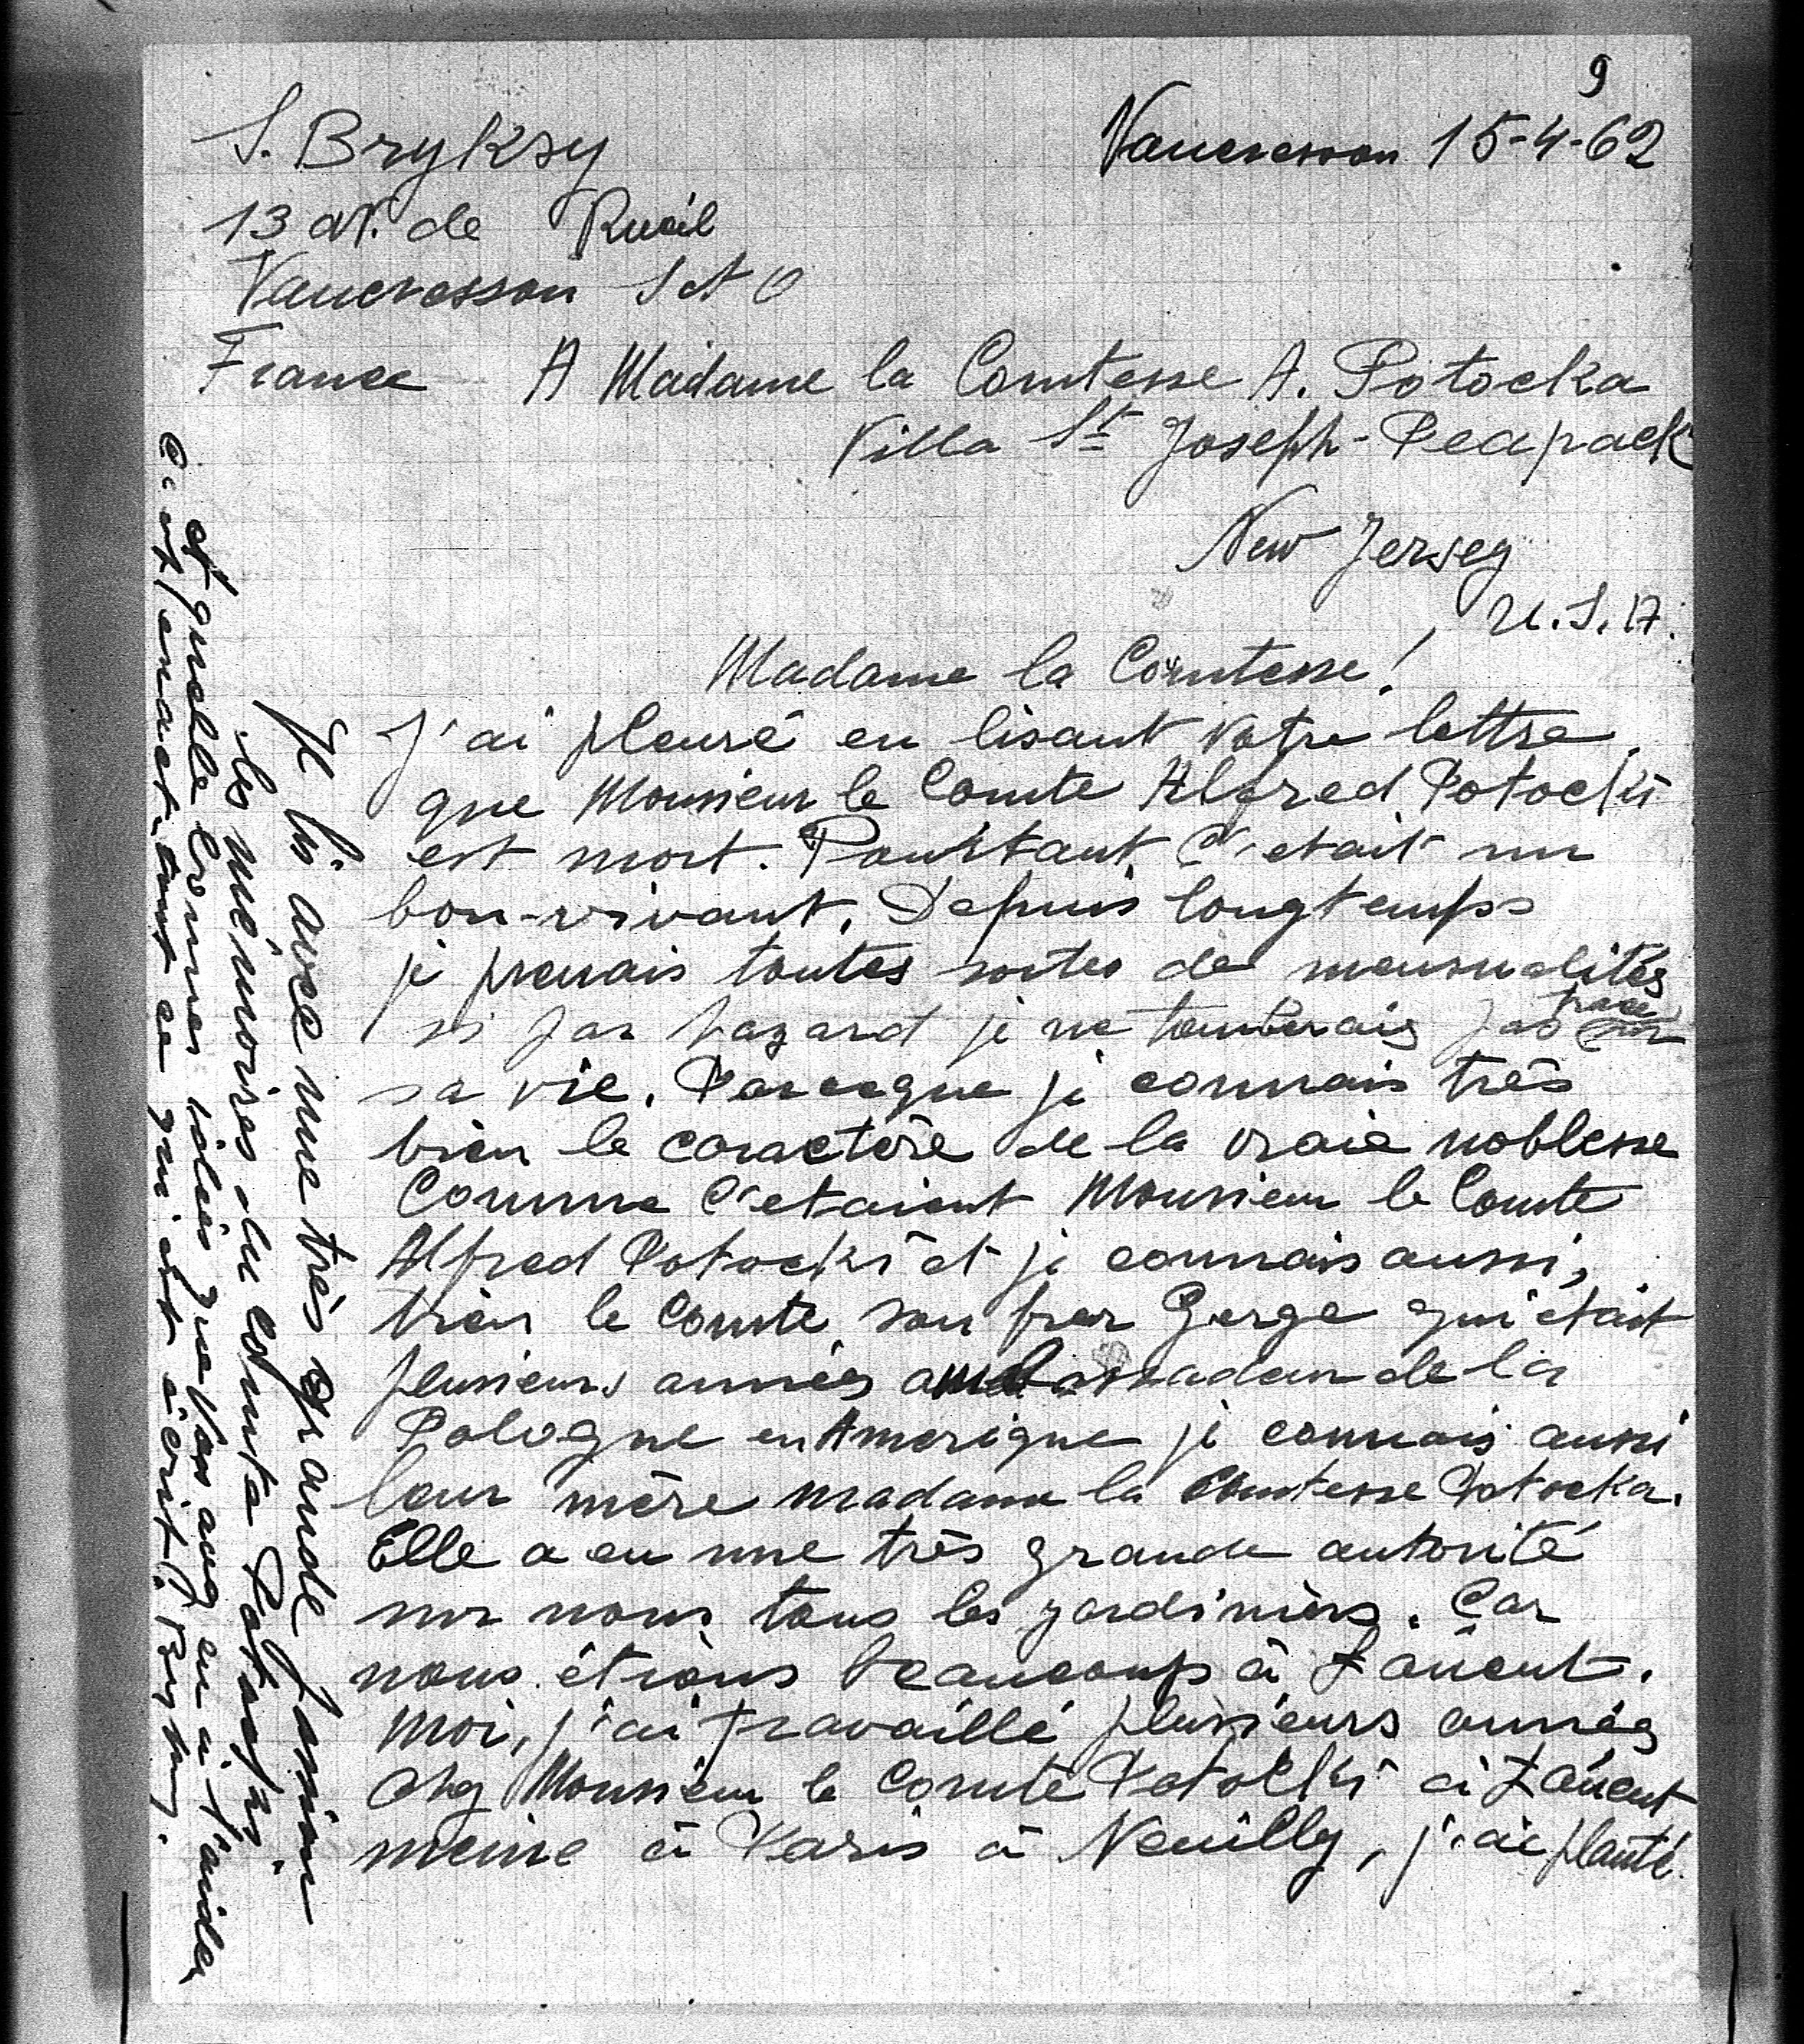 9
S. Bryksy
Vaucresson 15-4-62
13 av. de Rueil
Vaucresson S et O
France
A Madame la Comtesse A. Potocka
Villa St Joseph - Peapack
New Jersey
U.S.A.
Madame la Comtesse!
J'ai pleuré en lisant Votre lettre
que Monsieur le Comte Alfred Potocki
est mort. Pourtant C'etait un
bon-vivant. Depuis longtemps
je prenais toutes sortes de mensualités
si par hazard je ne tomberais pas trace
sa vie. Parceque je connais très
bien le caractère de la vraie noblesse
Comme C'etaient Monsieur le Comte
Alfred Potocki et je connais aussi,
bien le Comte son frer Gerge qui était
plusieurs années ambassadeur de la
Pologne en Amerique je connais aussi
leur mère madame la Comtesse Potocka.
Elle a eu une très grande autorité
sur nous tous les jardiniers. Car
nous étions beaucoup à Łańcut.
Moi, j'ai travaillé plusieurs années
chez Monsieur le Comte Potocki à Łańcut
meme à Paris à Neuilly, j'ai planté
Je lis avec une très grande
les mémoires du Comte Potocki.
et quelle bonnes idées que Vous avez eu a l'aider
tout ce qui est écrit.